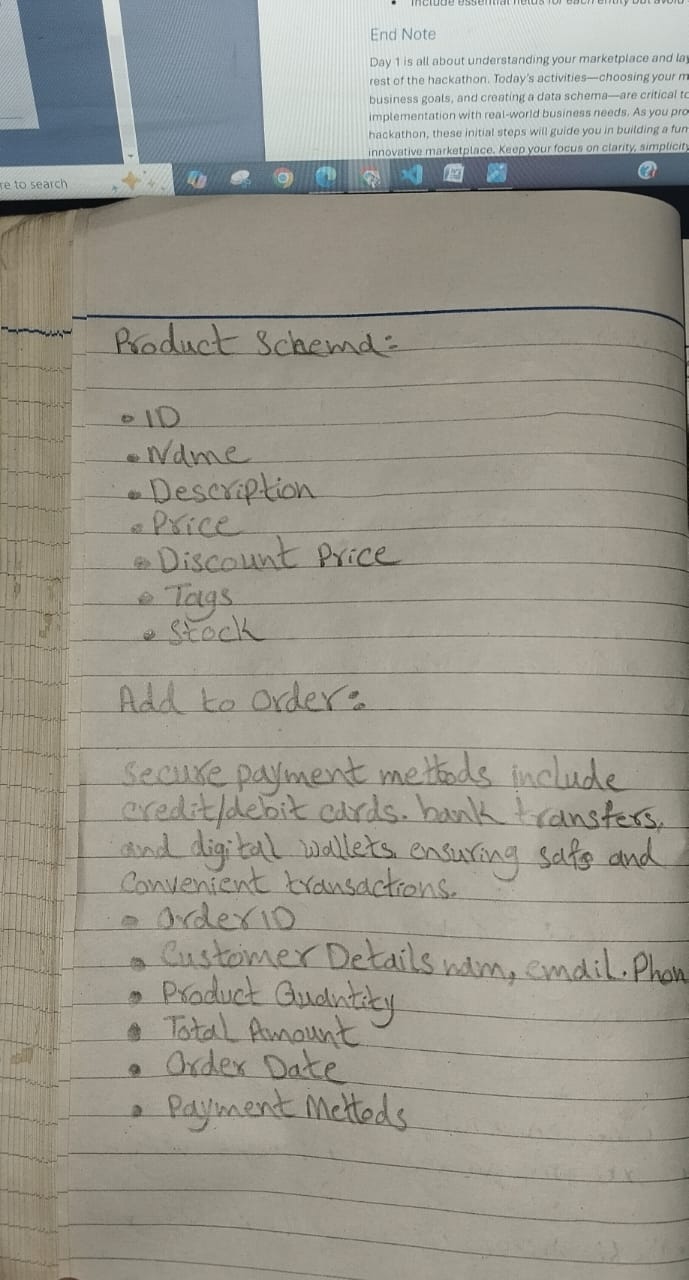 Include essential fields for each entity but avoid
End Note
Day 1 is all about understanding your marketplace and lay
rest of the hackathon. Today's activities—choosing your m
business goals, and creating a data schema—are critical to
implementation with real-world business needs. As you pro
hackathon, these initial steps will guide you in building a fun
innovative marketplace. Keep your focus on clarity, simplicity
re to search
Product Schema:
• ID
• Name
• Description
• Price
• Discount Price
• Tags
• Stock
Add to Order:
Secure payment mettods include
credit/debit cards. bank transfers,
and digital wallets, ensuring safe and
Convenient transactions.
• Order ID
• Customer Details nam, email. Phon
• Product Quantity
• Total Amount
• Order Date
• Payment Mettods